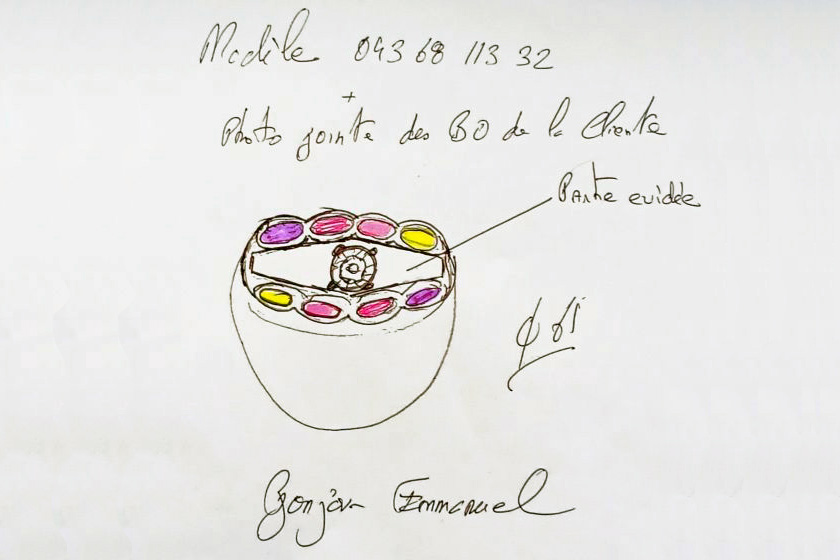 Modèle 043 68 113 32
+
Photo jointe des BO de la Cliente
Partie evidée
Bonjour Emmanuel